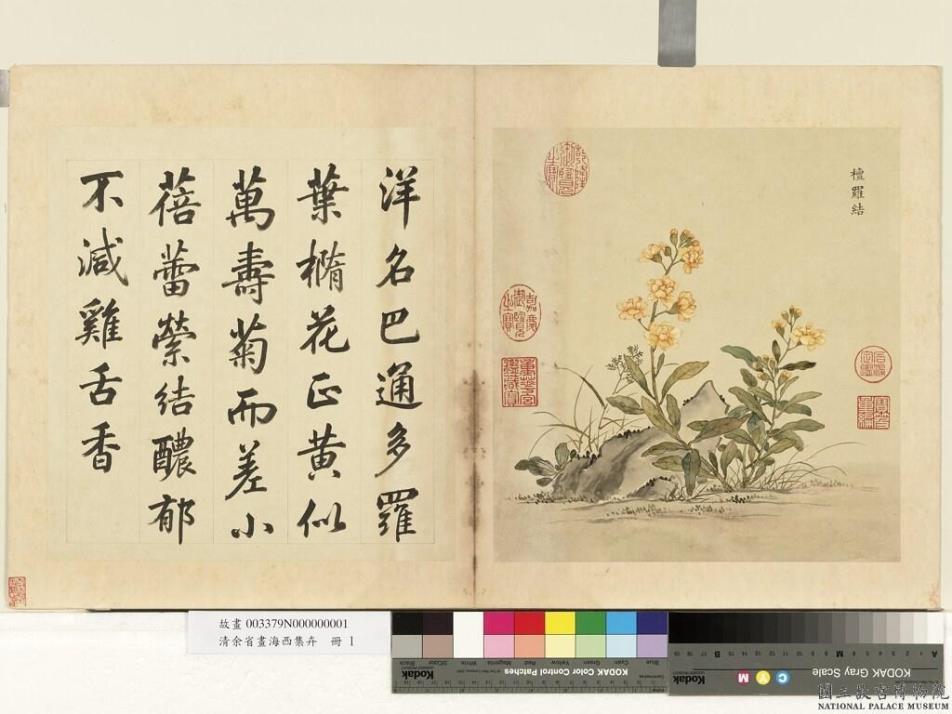 洋名巴通多羅
葉橢花正黃似
萬壽菊而差小
蓓蕾縈結醲郁
不減雞舌香
檀羅結
故畫 003379N000000001
清余省畫海西集卉 冊 1
Kodak Color Control Patches
Blue
Cyan
Green
Yellow
Red
Magenta
White
3/Color
Black
Kodak
KODAK Gray Scale
C
Y
M
Kodak
國立故宮博物院
NATIONAL PALACE MUSEUM